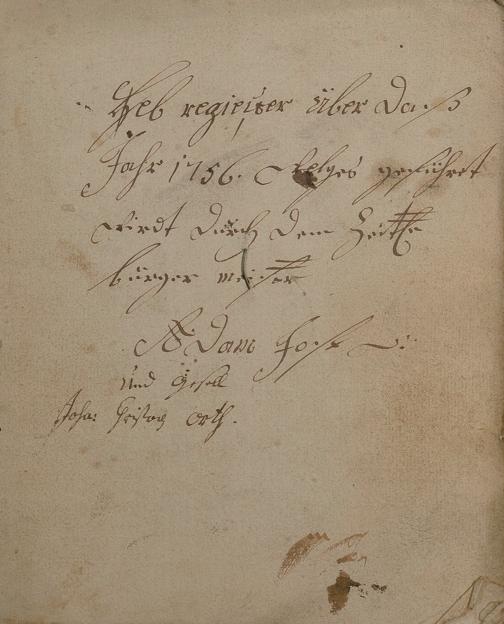 Heb regiester über daß
Jahr 1756. Welges geführet
wirdt durch dem Zeitte
bürger meister
Adam Jost
und Gesell
Joha: Cristoph Orth.